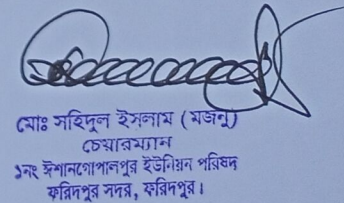 মোঃ সহিদুল ইসলাম (মজনু)
চেয়ারম্যান
১নং ঈশানগোপালপুর ইউনিয়ন পরিষদ
ফরিদপুর সদর, ফরিদপুর।